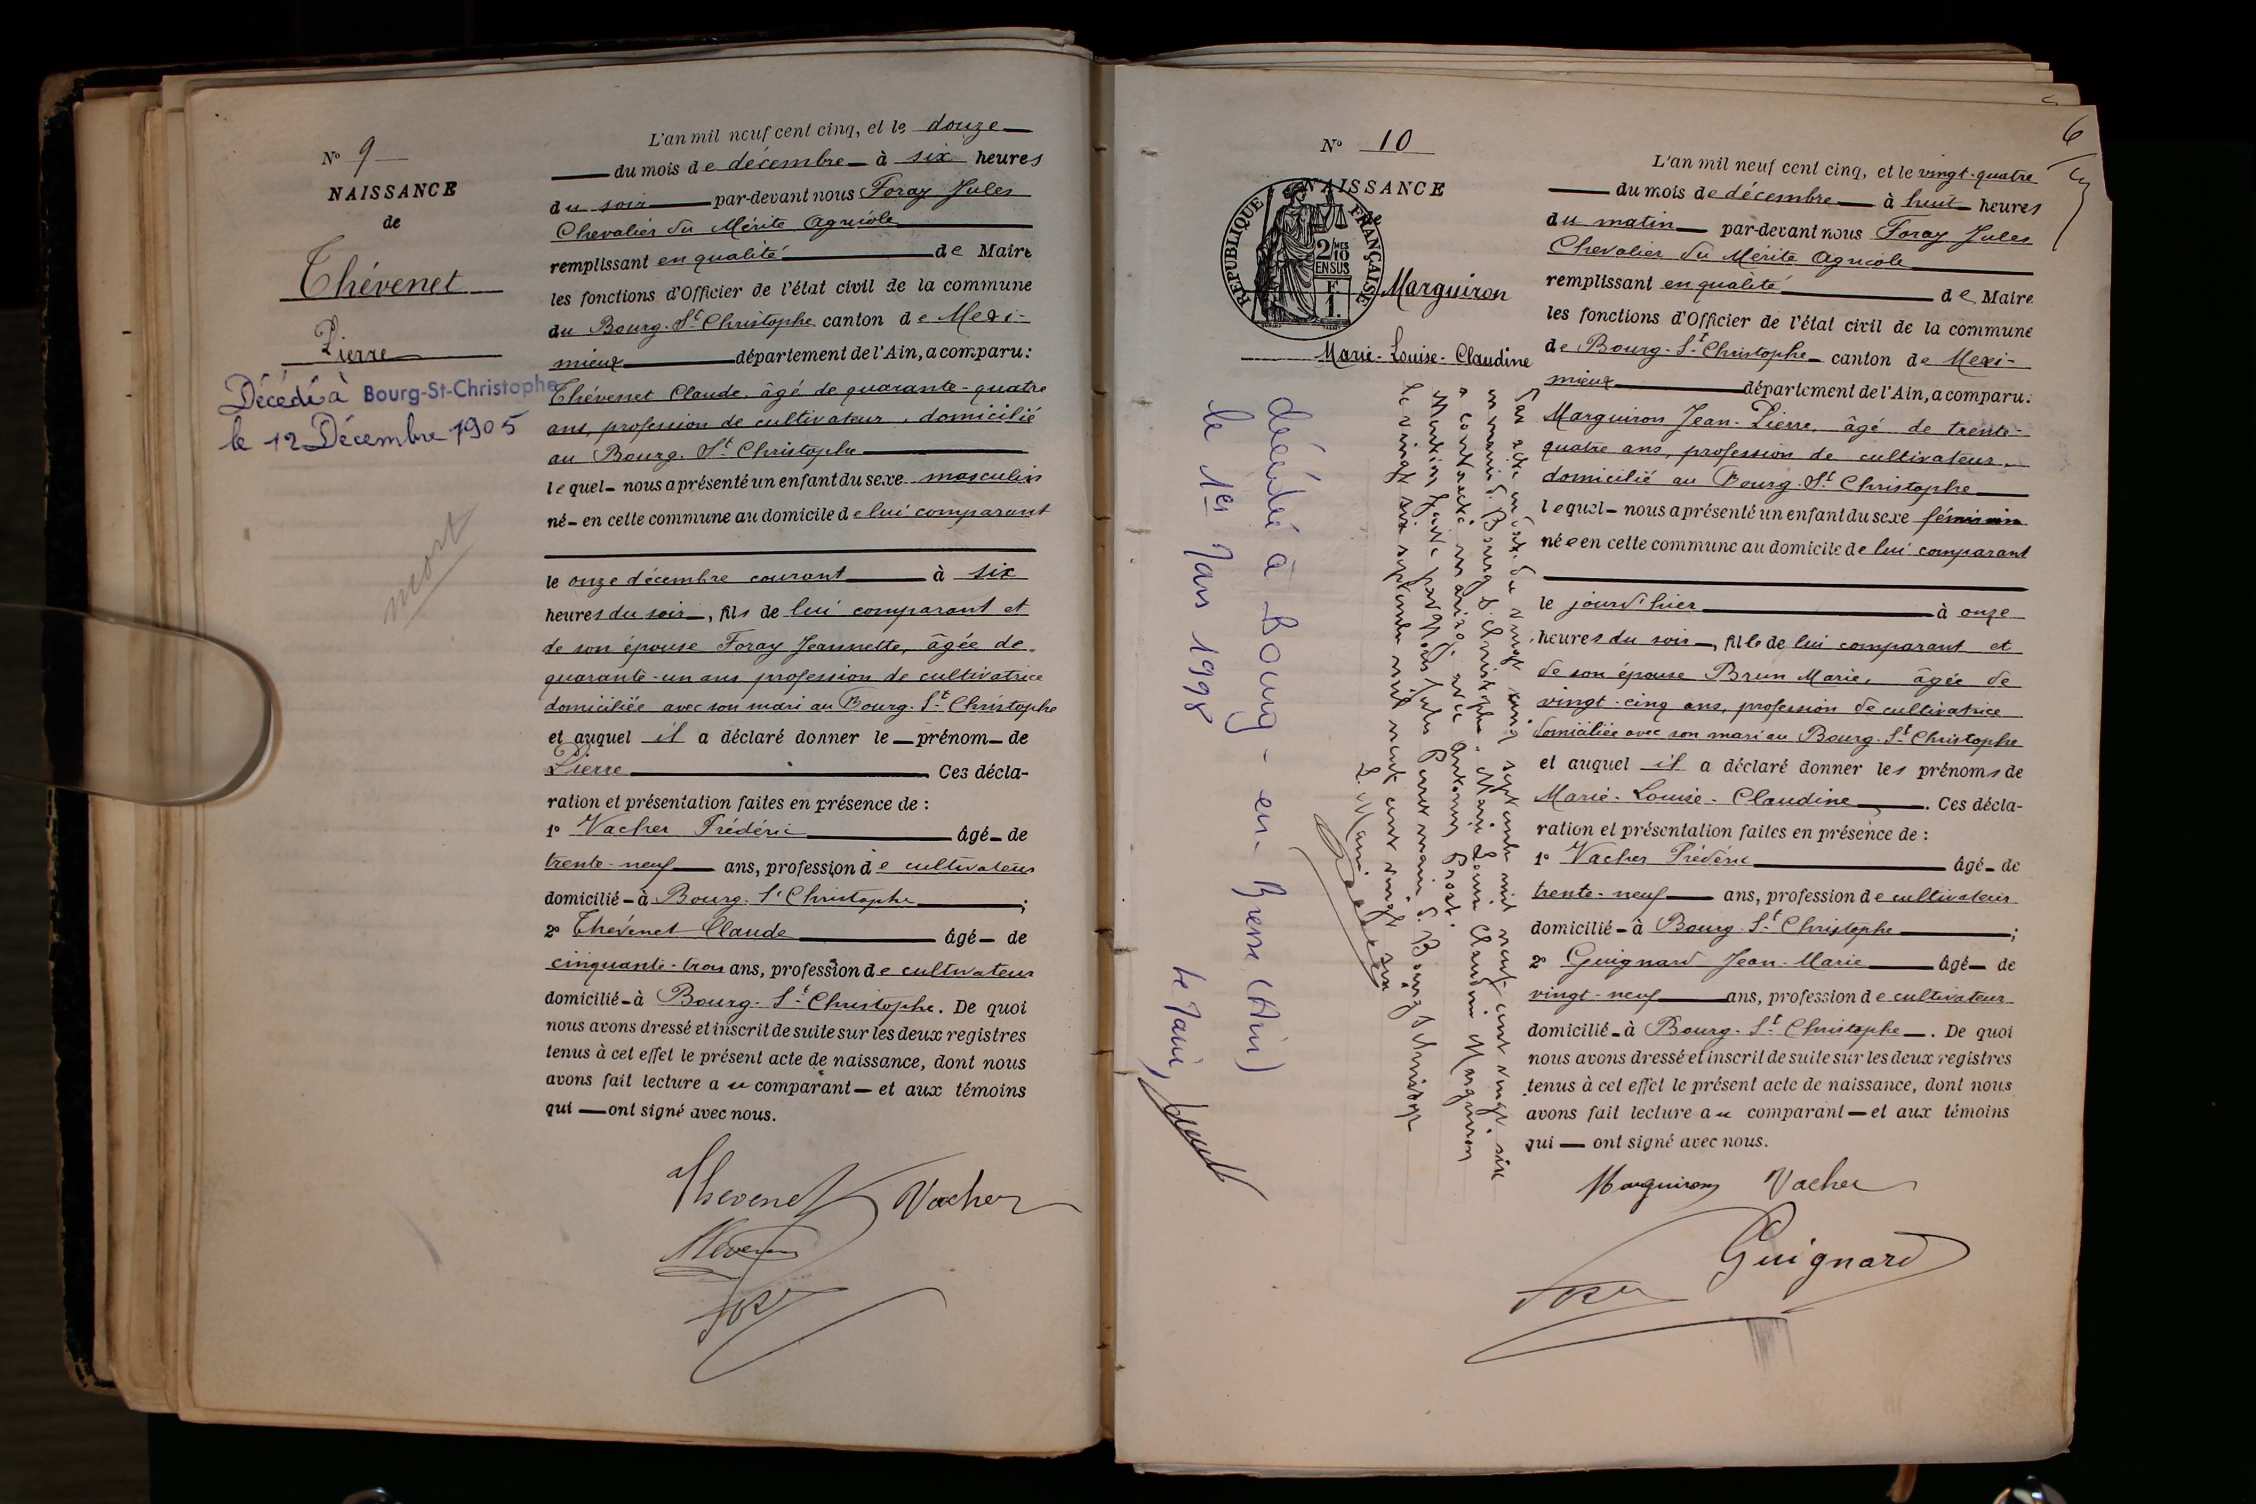 N° 9
NAISSANCE
de
Thévenet
Pierre
Décédé à Bourg-St-Christophe
le 12 Décembre 1905
mort
L'an mil neuf cent cinq, et le douze
du mois de décembre à six heures
du soir par-devant nous Foray Jules
Chevalier du Mérite Agricole
remplissant en qualité de Maire
les fonctions d'Officier de l'état civil de la commune
du Bourg-St-Christophe canton de Mexi-
mieux département de l'Ain, a comparu:
Thévenet Claude, âgé de quarante-quatre
ans, profession de cultivateur, domicilié
au Bourg-St-Christophe
lequel nous a présenté un enfant du sexe masculin
né en cette commune au domicile de lui comparant
le onze décembre courant à six
heures du soir, fils de lui comparant et
de son épouse Foray Jeannette, âgée de
quarante-un ans profession de cultivatrice
domiciliée avec son mari au Bourg-St-Christophe
et auquel il a déclaré donner le prénom de
Pierre Ces décla-
ration et présentation faites en présence de :
1° Vacher Frédéric âgé de
trente-neuf ans, profession de cultivateur
domicilié à Bourg-St Christophe ;
2° Thévenet Claude âgé de
cinquante-trois ans, profession de cultivateur
domicilié à Bourg-St-Christophe. De quoi
nous avons dressé et inscrit de suite sur les deux registres
tenus à cet effet le présent acte de naissance, dont nous
avons fait lecture au comparant et aux témoins
qui ont signé avec nous.
Thevenet Vacher
6
N° 10
NAISSANCE
de
REPUBLIQUE FRANÇAISE
2/10 MES
EN SUS
F
1.
Marguiron
Marie-Louise-Claudine
Par acte en date du vingt cinq septembre mil neuf cent vingt six
en mairie de Bourg St Christophe, Marie Louise Claudine Marguiron
a contracté mariage avec Antonin Prost.
Mention faite par nous Jules Perret maire de Bourg St Christophe
le vingt six septembre mil neuf cent vingt six
Le Maire
décédée à Bourg-en-Bresse (Ain)
le 1er Mars 1998
Le Maire,
L'an mil neuf cent cinq, et le vingt-quatre
du mois de décembre à huit heures
du matin par-devant nous Foray Jules
Chevalier du Mérite Agricole
remplissant en qualité de Maire
les fonctions d'Officier de l'état civil de la commune
de Bourg-St-Christophe canton de Mexi-
mieux département de l'Ain, a comparu:
Marguiron Jean-Pierre, âgé de trente-
quatre ans, profession de cultivateur,
domicilié au Bourg-St Christophe
lequel nous a présenté un enfant du sexe féminin
née en cette commune au domicile de lui comparant
le jour d'hier à onze
heures du soir, fille de lui comparant et
de son épouse Brun Marie, âgée de
vingt-cinq ans, profession de cultivatrice
domiciliée avec son mari au Bourg-St-Christophe
et auquel il a déclaré donner les prénoms de
Marie-Louise-Claudine. Ces décla-
ration et présentation faites en présence de :
1° Vacher Frédéric âgé de
trente-neuf ans, profession de cultivateur
domicilié à Bourg-St-Christophe ;
2° Guignard Jean-Marie âgé de
vingt-neuf ans, profession de cultivateur
domicilié à Bourg-St Christophe. De quoi
nous avons dressé et inscrit de suite sur les deux registres
tenus à cet effet le présent acte de naissance, dont nous
avons fait lecture au comparant et aux témoins
qui ont signé avec nous.
Marguiron Vacher
Guignard